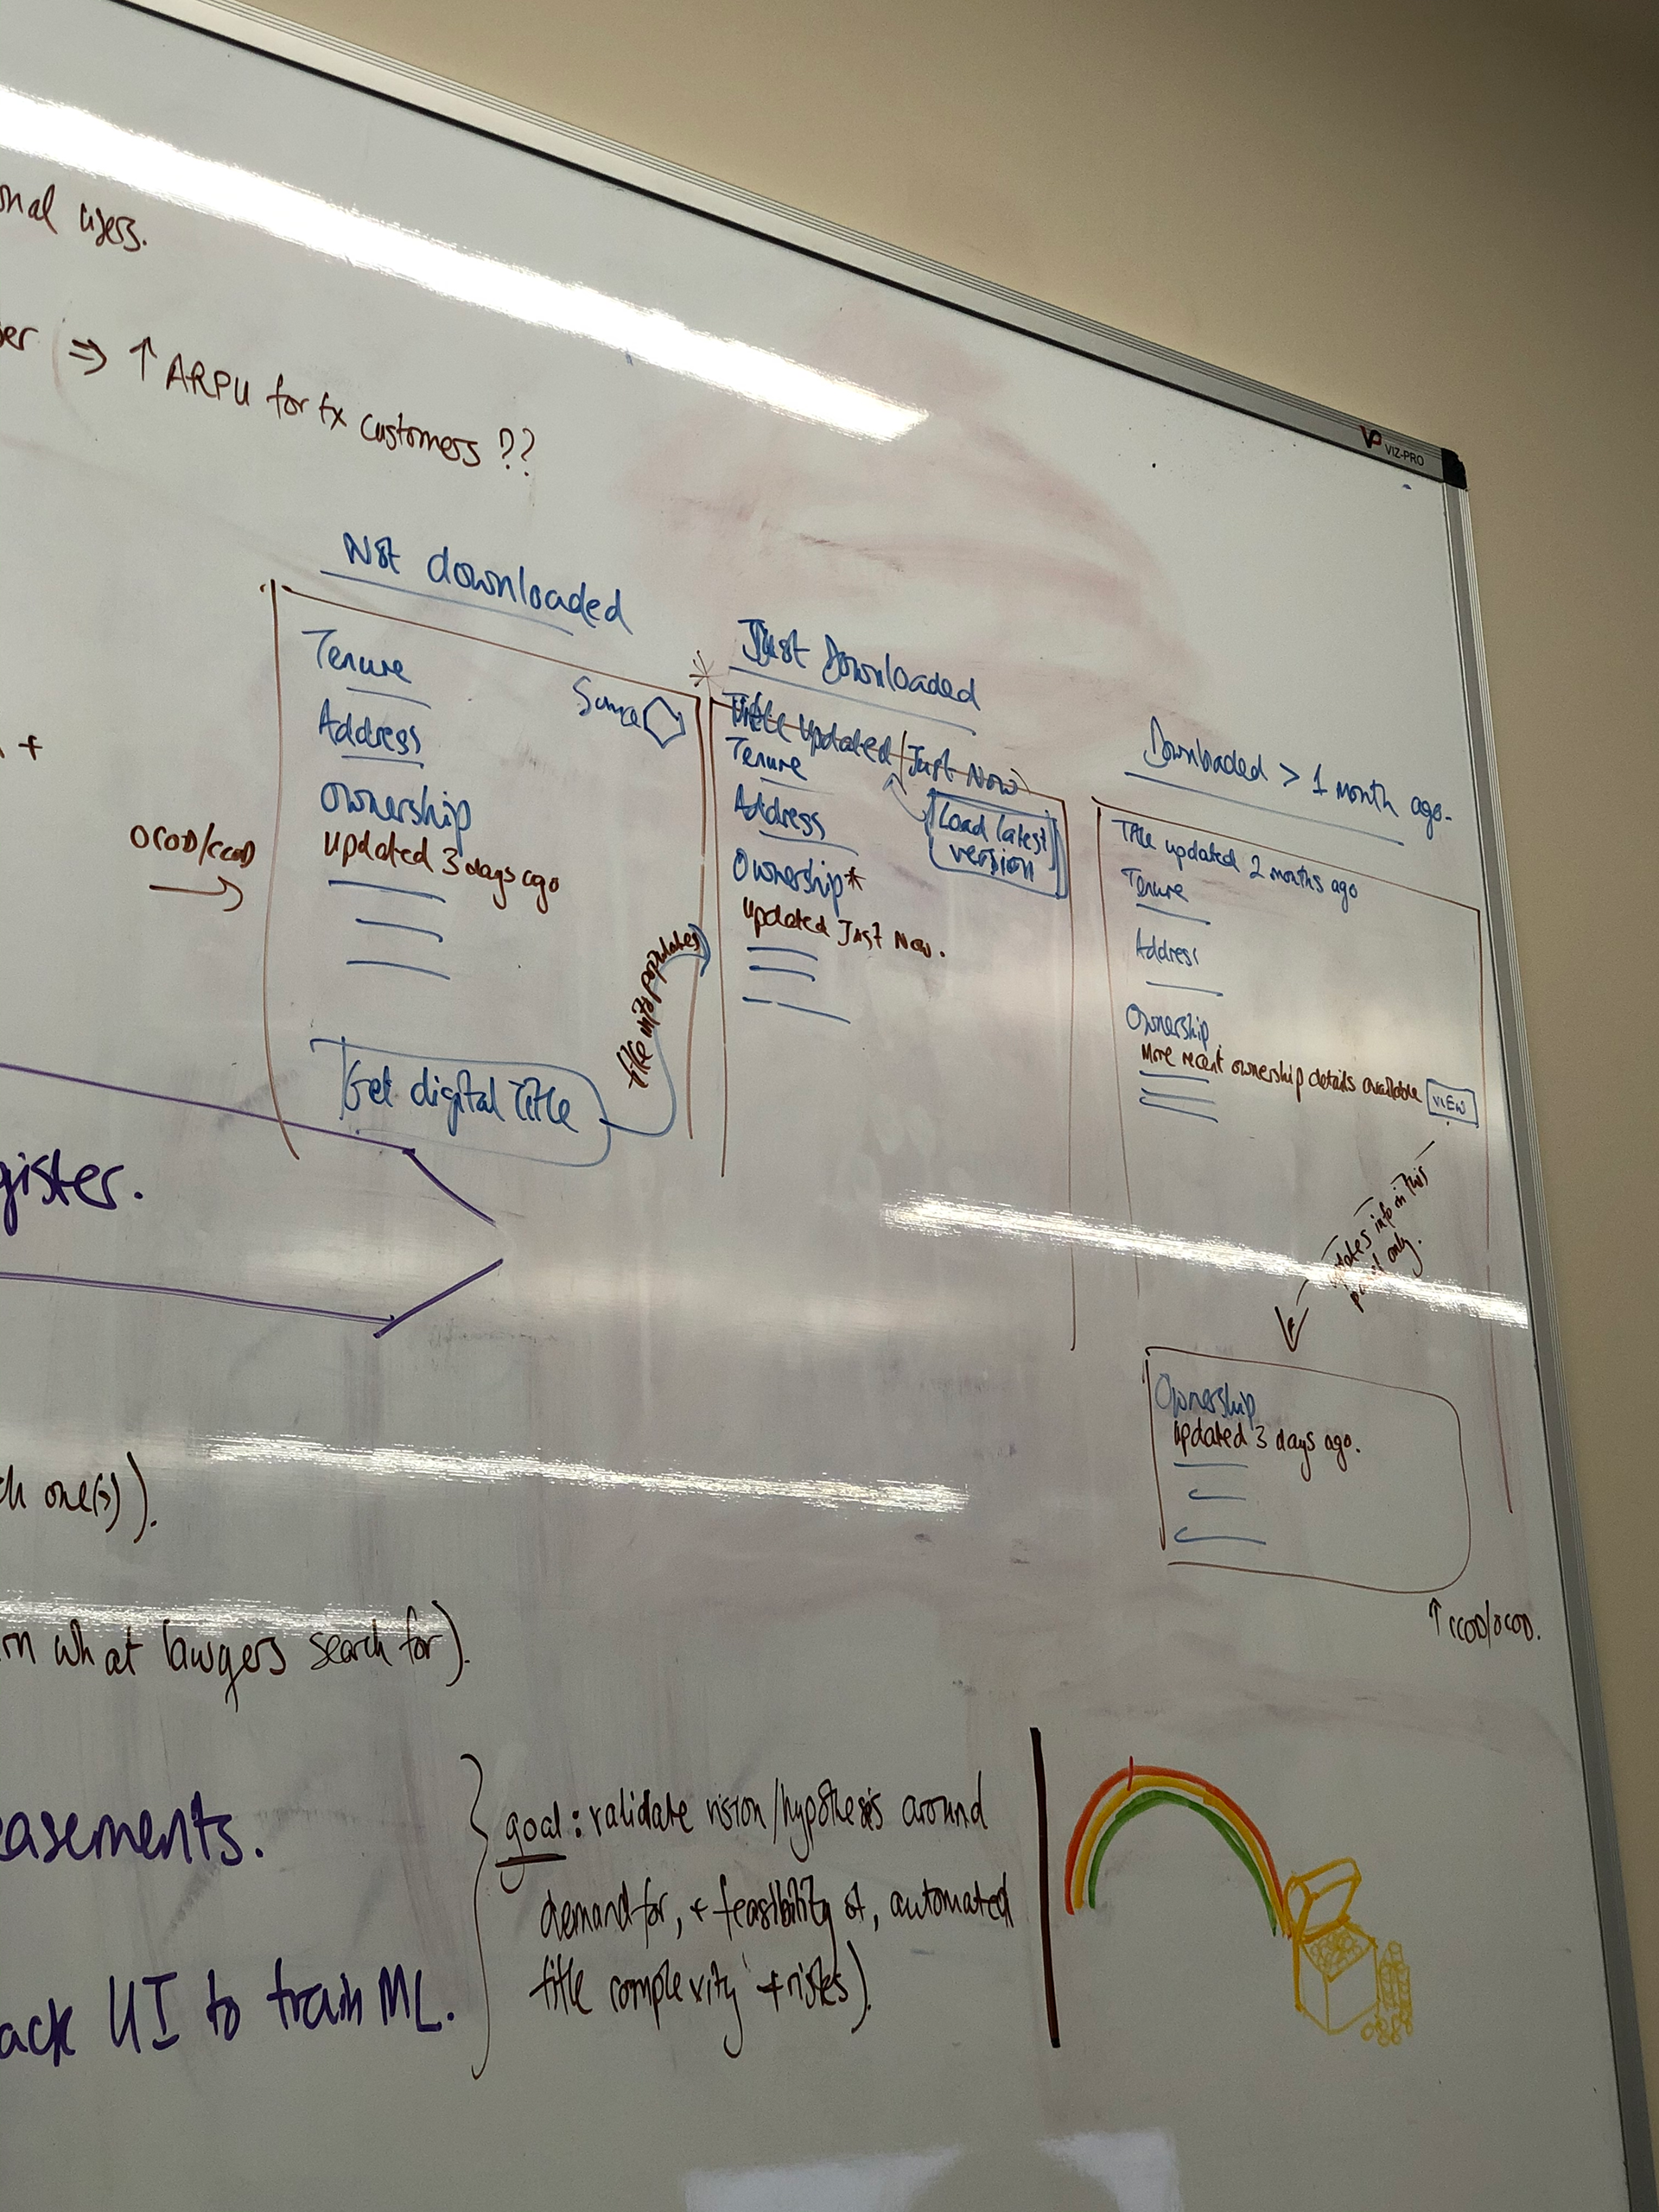 onal users.
er ⇒ ↑ ARPU for tx customers ??
VP VIZ-PRO
+
OCOD/CCOD
Not downloaded
Tenure
Address
Ownership
updated 3 days ago
Get digital Title
title info populates
Just Downloaded
Title Updated Just Now
Tenure
Address
Load latest
version
Ownership*
updated Just Now.
Downloaded > 1 month ago.
Title updated 2 months ago
Tenure
Address
Ownership
More recent ownership details available
VIEW
info in this
only.
Ownership
updated 3 days ago.
↑ CCOD/OCOD.
gister.
ch one(s)).
rn what lawyers search for).
easements.
ack UI to train ML.
goal: validate vision/hypothesis around
demand for, + feasibility of, automated
title complexity + risks).